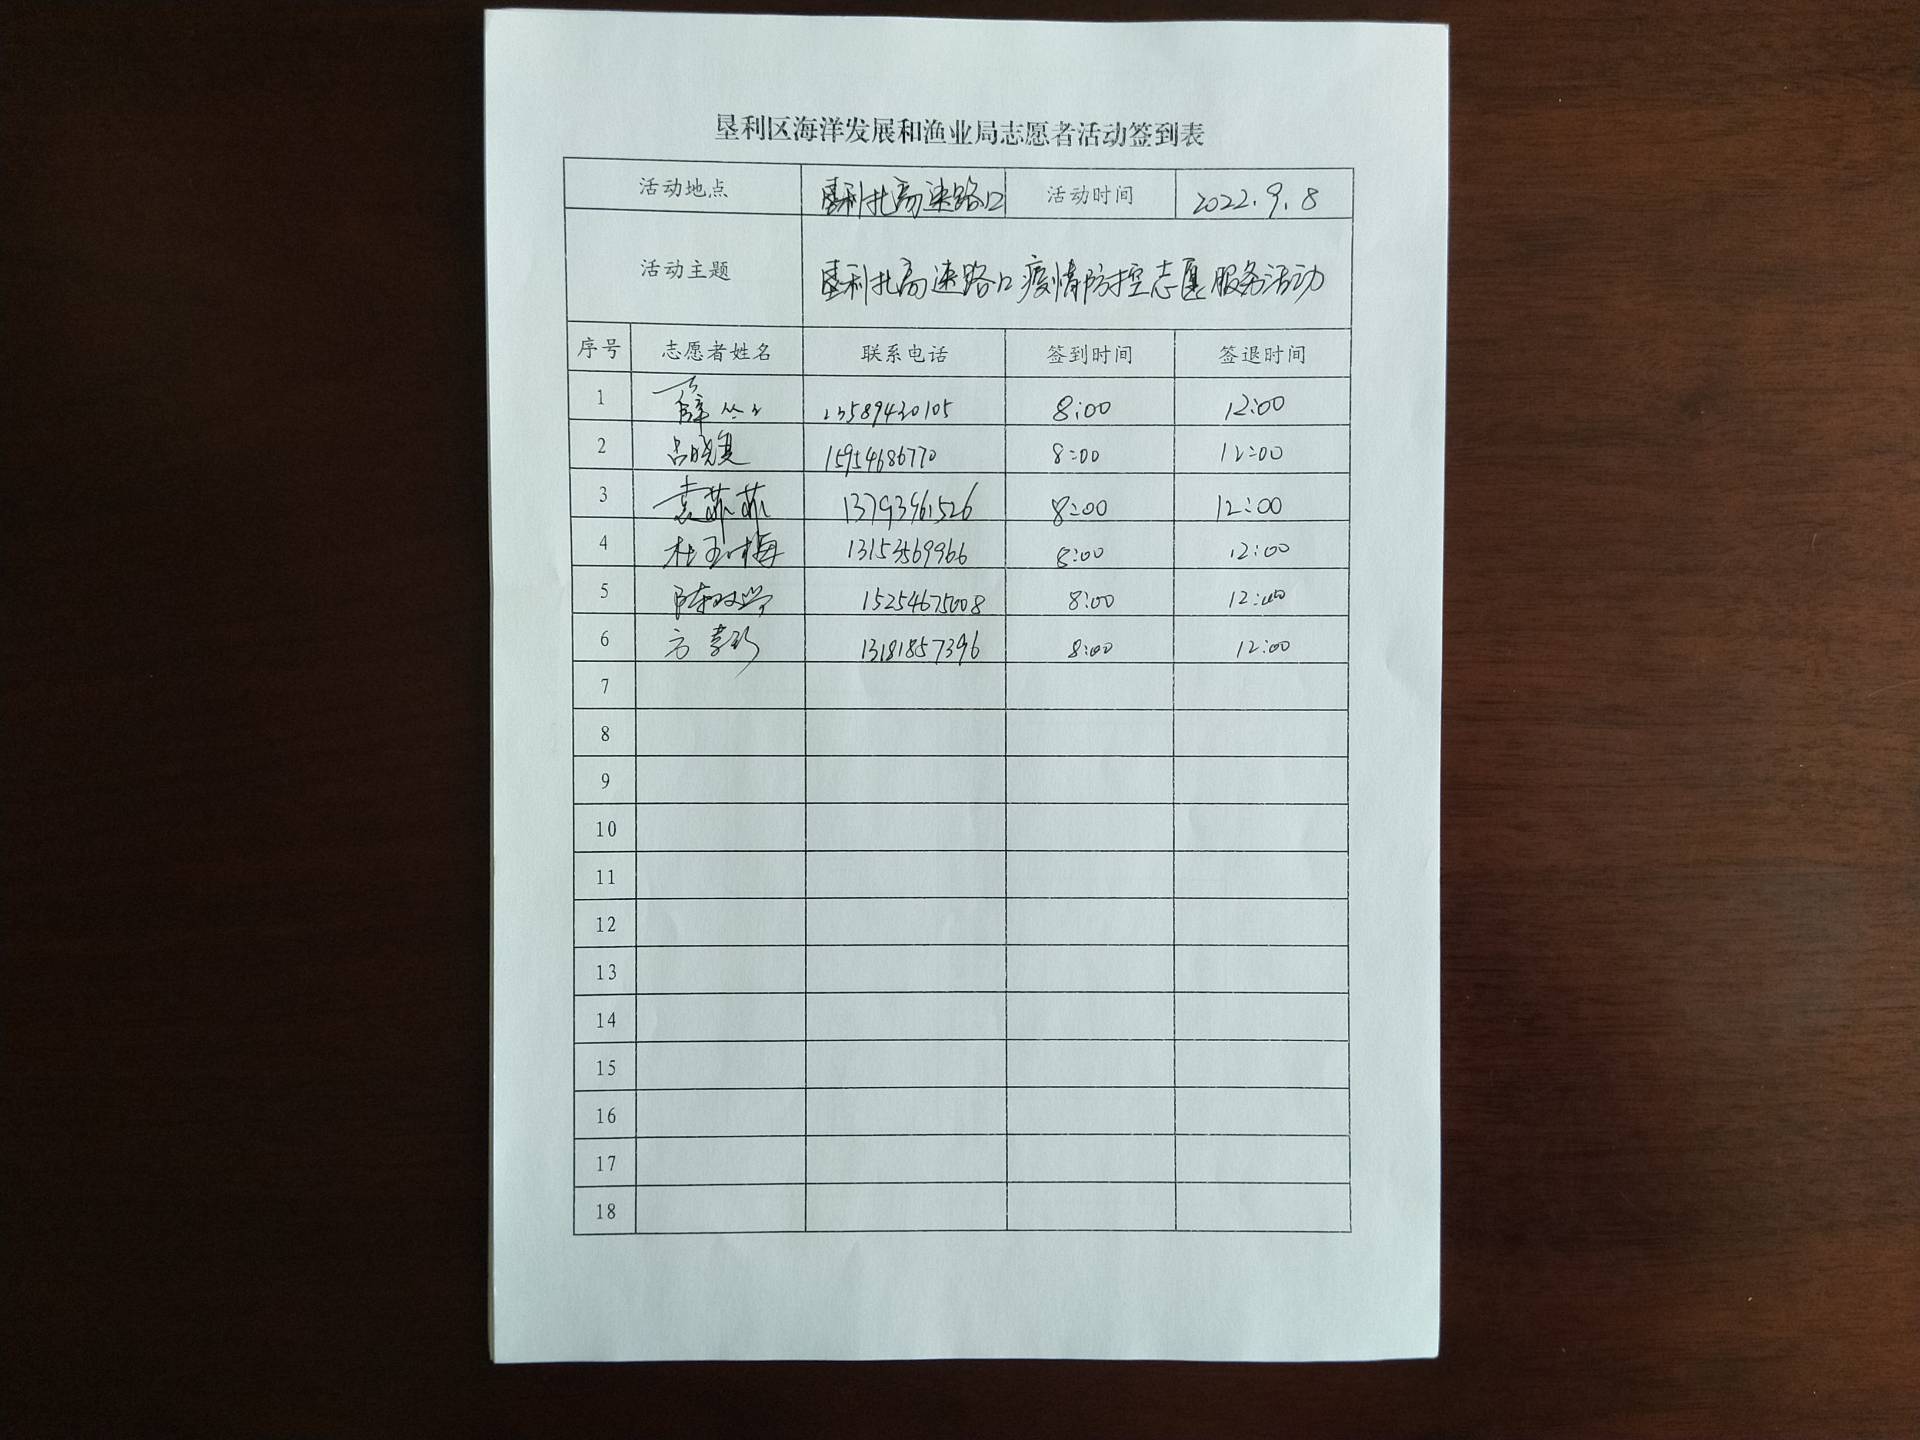 垦利区海洋发展和渔业局志愿者活动签到表
活动地点 垦利北高速路口 活动时间 2022.9.8
活动主题 垦利北高速路口疫情防控志愿服务活动
序号 志愿者姓名 联系电话 签到时间 签退时间
1 薛 13589430105 8:00 12:00
2 吕晓 15954686770 8:00 12:00
3 袁菲菲 13793961526 8:00 12:00
4 杜玉梅 13153569966 8:00 12:00
5 陈双学 15254675008 8:00 12:00
6 方 13181857396 8:00 12:00
7
8
9
10
11
12
13
14
15
16
17
18